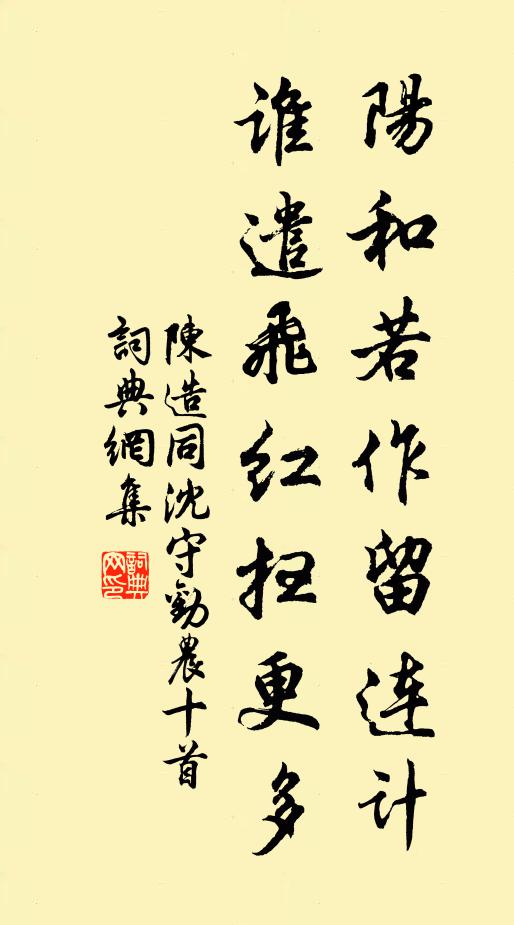 陽和若作留連計
誰遣飛紅抂更多
陳造同沈守勸農十首
詞典網集
詞典網印